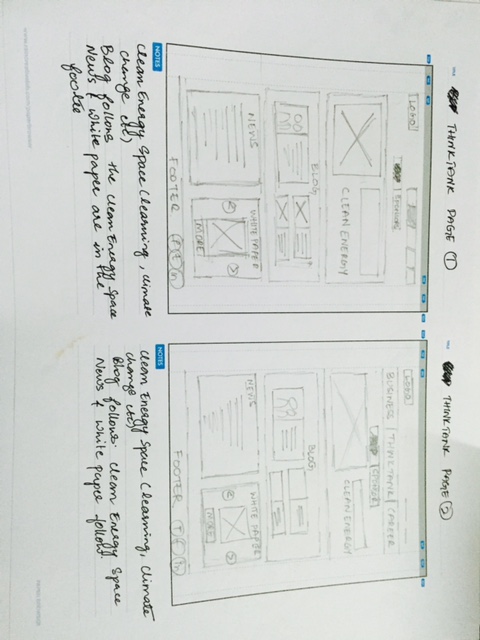 THINKTANK PAGE 1
LOGO
SPONSORS
CLEAN ENERGY
BLOG
NEWS
WHITE PAPER
MORE
FOOTER
NOTES
Clean Energy Space (learning, climate
change etc)
Blog follows the Clean Energy Space
News & White paper are in the
footer
THINKTANK PAGE 2
LOGO
BUSINESS | THINKTANK | CAREER
CLEAN ENERGY
BLOG
NEWS
WHITE PAPER
MORE
FOOTER
NOTES
Clean Energy Space (learning, climate
change etc)
Blog follows Clean Energy Space
News & White paper follow.